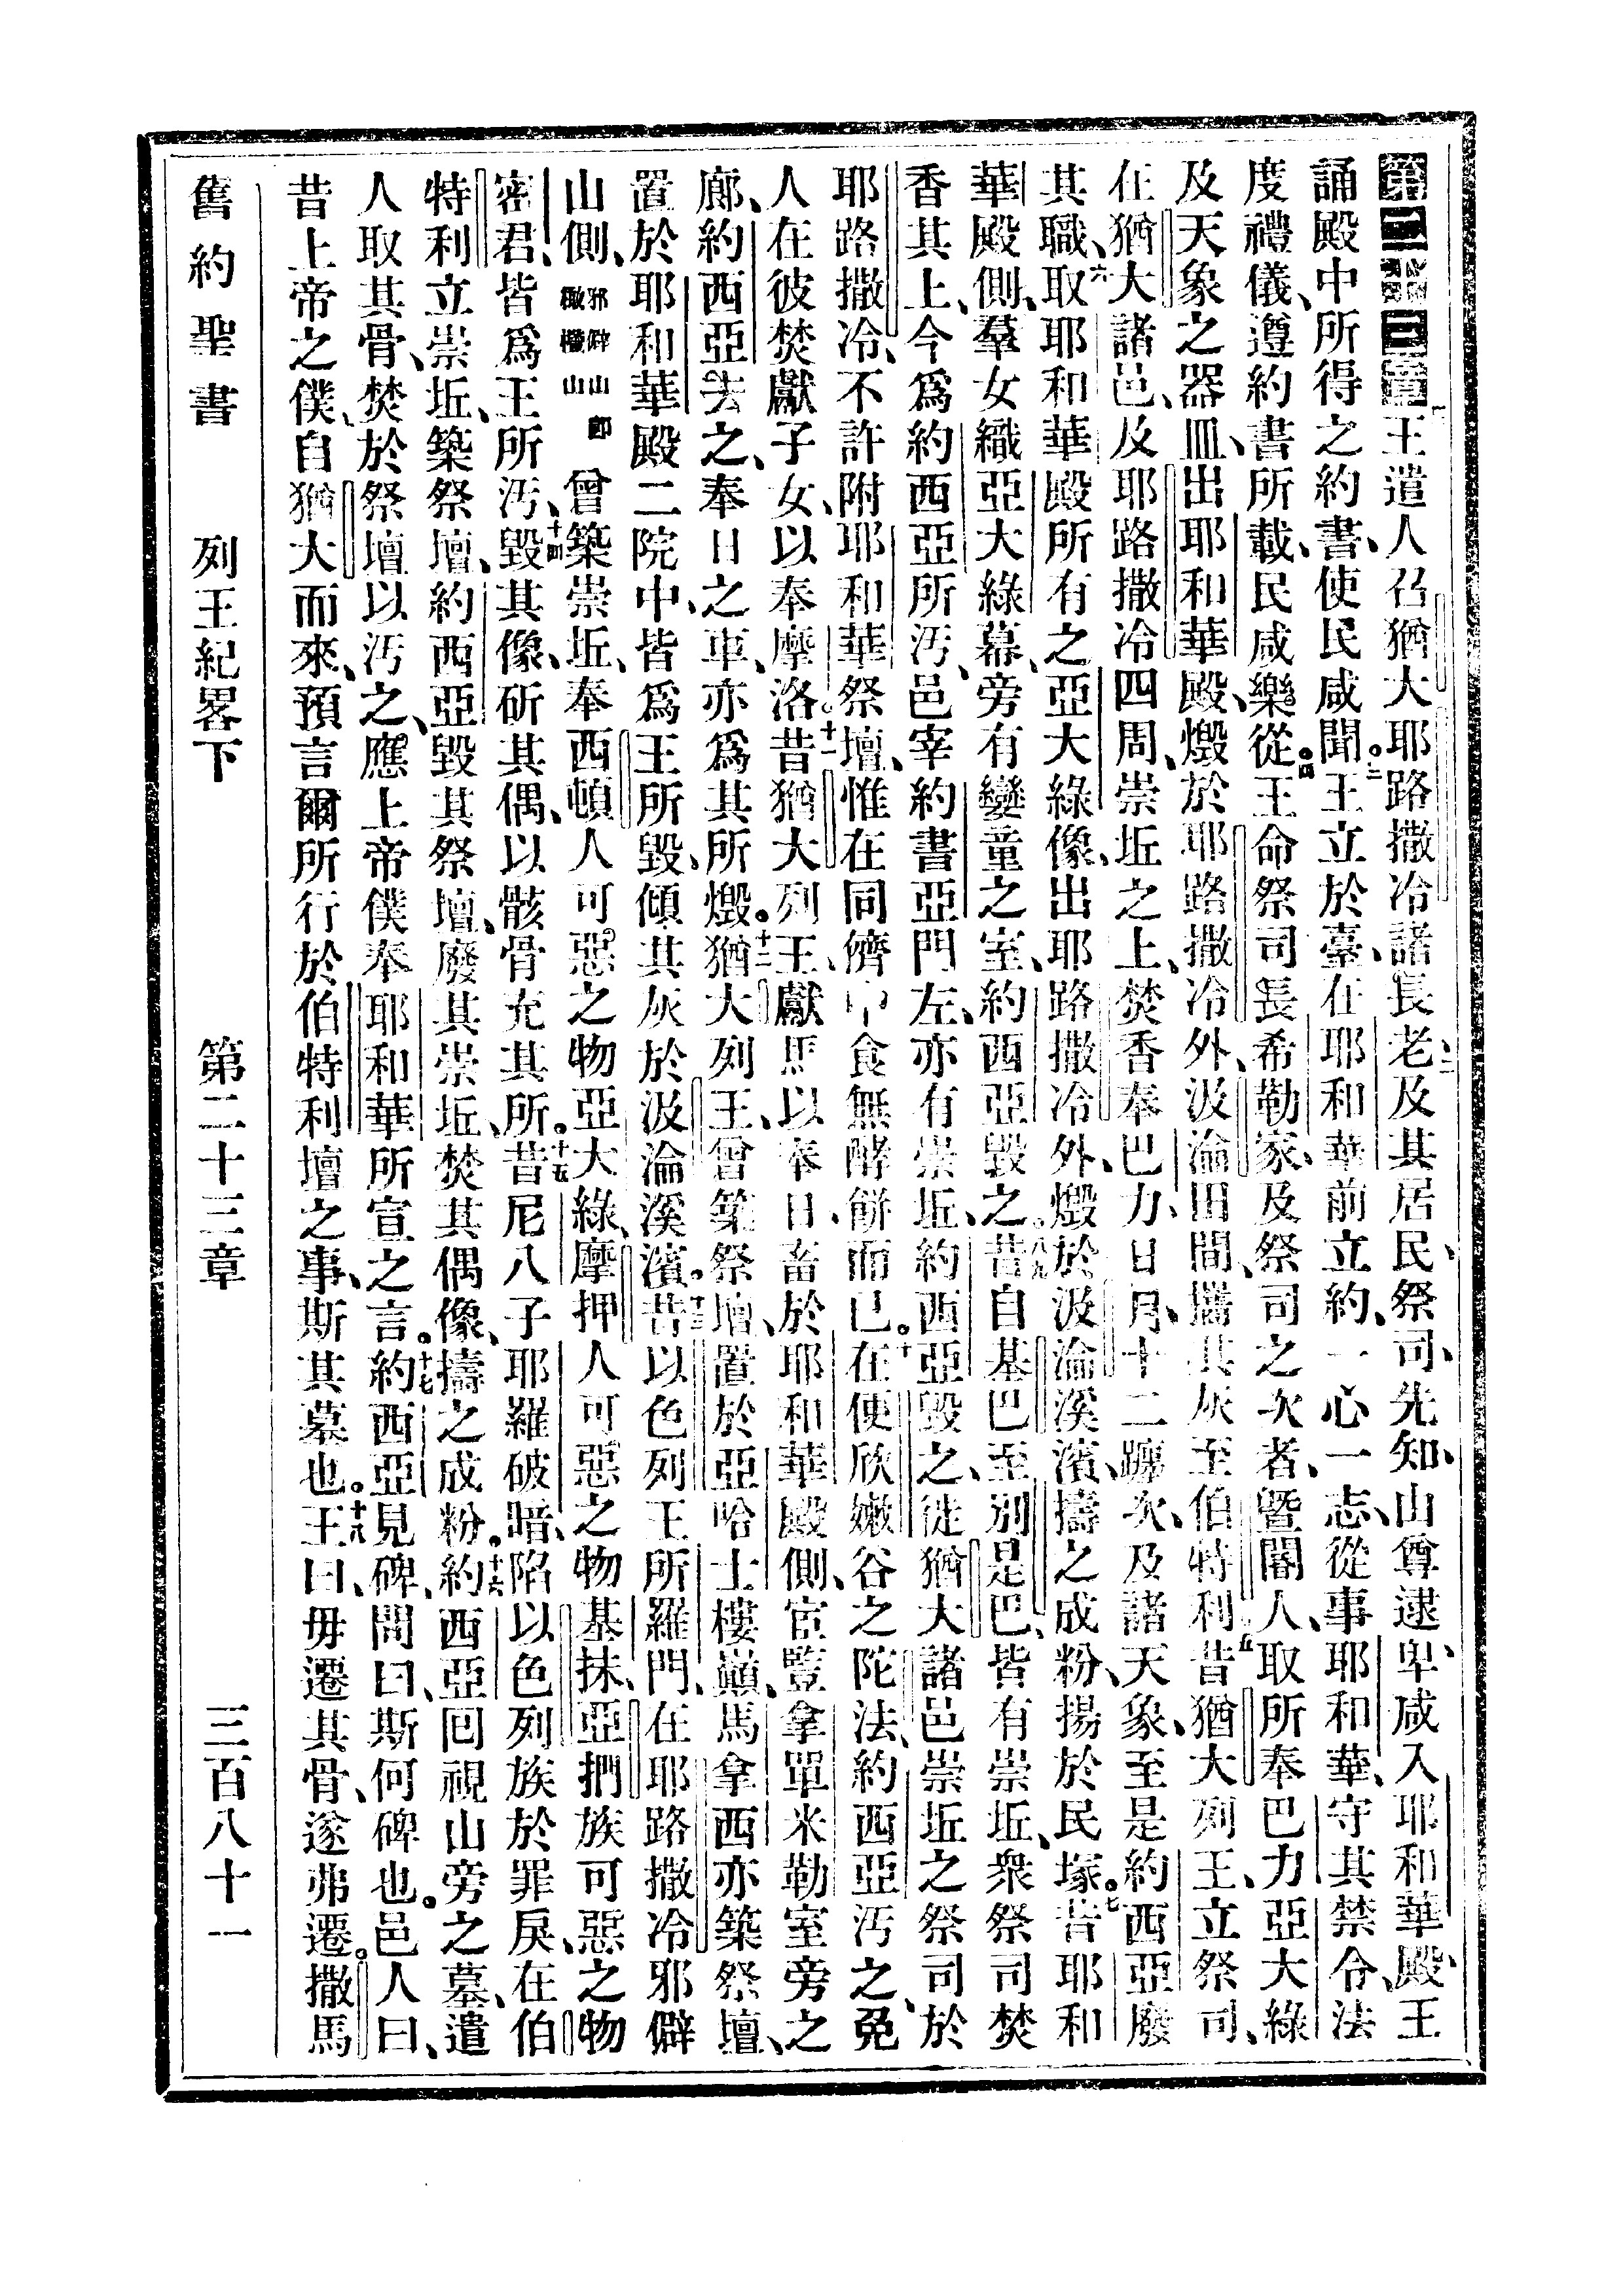 第二十三章一王遣人召猶大耶路撒冷諸長老二及其居民、祭司、先知、山尊逮卑、咸入耶和華殿、王
誦殿中所得之約書、使民咸聞。三王立於臺、在耶和華前立約、一心一志、從事耶和華、守其禁令、法
度禮儀、遵約書所載、民咸樂從。四王命祭司長希勒家、及祭司之次者、曁閽人、取所奉巴力亞大綠
及天象之器皿、出耶和華殿、燬於耶路撒冷外、汲淪田間、攜其灰至伯特利、五昔猶大列王、立祭司、
在猶大諸邑、及耶路撒冷四周、崇坵之上、焚香奉巴力、日月、十二躔次、及諸天象、至是約西亞廢
其職、六取耶和華殿所有之亞大綠像、出耶路撒冷外、燬於汲淪溪濱、擣之成粉、揚於民塚。七昔耶和
華殿側、羣女織亞大綠幕、旁有孌童之室、約西亞毀之。八昔自基巴至別是巴、皆有崇坵、衆祭司焚
香其上、今爲約西亞所汚、邑宰約書亞門左、亦有崇坵、約西亞毀之、徙猶大諸邑崇坵之祭司、於
耶路撒冷、不許附耶和華祭壇、惟在同儕中食無酵餅而已。十在便欣嫩谷之陀法、約西亞汚之、免
人在彼焚獻子女、以奉摩洛。十一昔猶大列王、獻馬以奉日、畜於耶和華殿側、宦豎拿單米勒室旁之
廊、約西亞去之、奉日之車、亦爲其所燬。十二猶大列王、曾築祭壇、置於亞哈士樓巔、馬拿西亦築祭壇、
置於耶和華殿二院中、皆爲王所毀、傾其灰於汲淪溪濱。十三昔以色列王所羅門、在耶路撒冷邪僻
山側、邪僻山卽橄欖山曾築崇坵、奉西頓人可惡之物亞大綠、摩押人可惡之物基抹、亞捫族可惡之物
密君、皆爲王所汚、十四毀其像、斫其偶、以骸骨充其所。十五昔尼八子耶羅破暗、陷以色列族於罪戾、在伯
特利立崇坵、築祭壇、約西亞毀其祭壇、廢其崇坵、焚其偶像、擣之成粉。十六約西亞囘視山旁之墓、遣
人取其骨、焚於祭壇以汚之、應上帝僕奉耶和華所宣之言。十七約西亞見碑、問曰、斯何碑也。邑人曰、
昔上帝之僕、自猶大而來、預言爾所行於伯特利壇之事、斯其墓也。十八王曰、毋遷其骨、遂弗遷。撒馬
舊約聖書 列王紀畧下 第二十三章 三百八十一